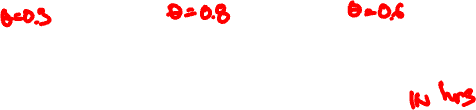 θ=0.3 θ=0.8 θ=0.6
IN hrs